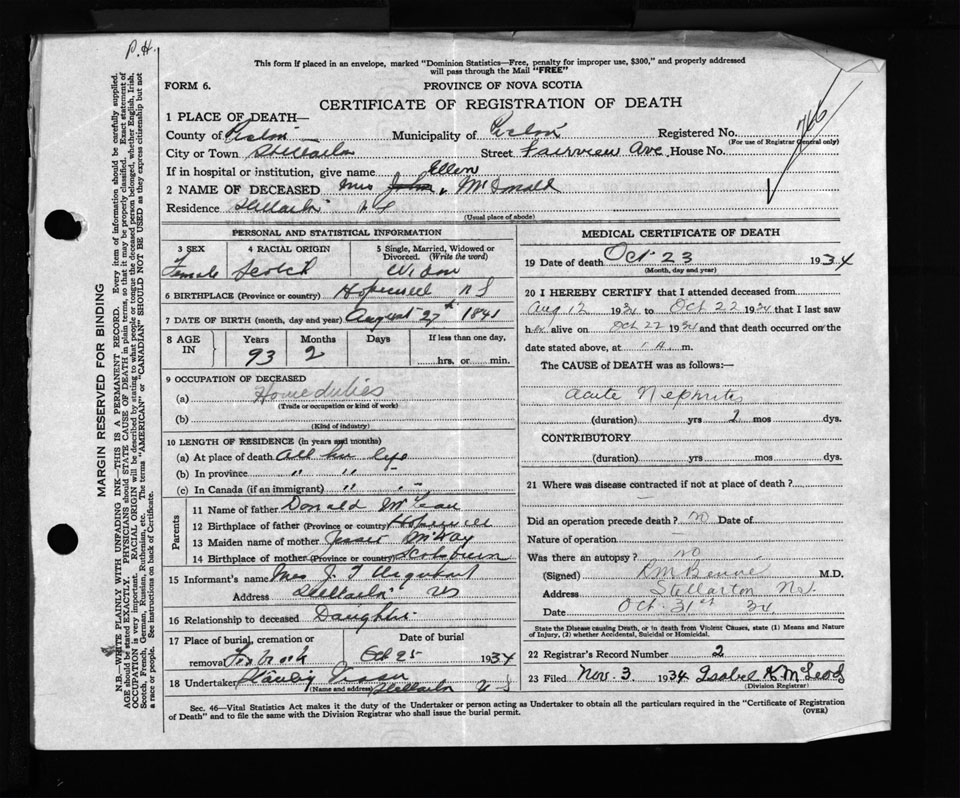 P.H.
This form if placed in an envelope, marked "Dominion Statistics—Free, penalty for improper use, $300," and properly addressed
will pass through the Mail "FREE"
FORM 6.
PROVINCE OF NOVA SCOTIA
CERTIFICATE OF REGISTRATION OF DEATH
1 PLACE OF DEATH—
County of Pictou Municipality of Pictou Registered No.
(For use of Registrar General only)
City or Town Stellarton Street Fairview Ave House No.
If in hospital or institution, give name
Ellen
2 NAME OF DECEASED Mrs John McDonald
Residence Stellarton NS
(Usual place of abode)
PERSONAL AND STATISTICAL INFORMATION
3 SEX 4 RACIAL ORIGIN 5 Single, Married, Widowed or Divorced. (Write the word)
Female Scotch Widow
6 BIRTHPLACE (Province or country) Hopewell NS
7 DATE OF BIRTH (month, day and year) August 27th 1841
8 AGE IN Years Months Days If less than one day,
93 2 hrs. or min.
9 OCCUPATION OF DECEASED
(a) Home duties
(Trade or occupation or kind of work)
(b)
(Kind of industry)
10 LENGTH OF RESIDENCE (in years and months)
(a) At place of death All her life
(b) In province " " "
(c) In Canada (if an immigrant) " " "
Parents
11 Name of father Donald McLean
12 Birthplace of father (Province or country) Hopewell
13 Maiden name of mother McKay
14 Birthplace of mother (Province or country) Scotsburn
15 Informant's name Mrs J Urquhart
Address Stellarton NS
16 Relationship to deceased Daughter
17 Place of burial, cremation or removal Date of burial
Oct 25 1934
18 Undertaker
(Name and address) Stellarton NS
MEDICAL CERTIFICATE OF DEATH
19 Date of death Oct 23 1934
(Month, day and year)
20 I HEREBY CERTIFY that I attended deceased from
Aug 12 1934 to Oct 22 1934 that I last saw
her alive on Oct 22 1934 and that death occurred on the
date stated above, at 1 A. m.
The CAUSE of DEATH was as follows:—
Acute Nephritis
(duration) yrs 2 mos dys.
CONTRIBUTORY.
(duration) yrs mos dys.
21 Where was disease contracted if not at place of death?
Did an operation precede death? no Date of
Nature of operation
Was there an autopsy? no
(Signed) M.D.
Address Stellarton N.S.
Date Oct 31st 34
State the Disease causing Death, or in death from Violent Causes, state (1) Means and Nature
of Injury, (2) whether Accidental, Suicidal or Homicidal.
22 Registrar's Record Number 2
23 Filed Nov. 3. 1934 Isabel McLeod
(Division Registrar)
Sec. 46—Vital Statistics Act makes it the duty of the Undertaker or person acting as Undertaker to obtain all the particulars required in the "Certificate of Registration
of Death" and to file the same with the Division Registrar who shall issue the burial permit. (OVER)
MARGIN RESERVED FOR BINDING
N.B.—WRITE PLAINLY WITH UNFADING INK—THIS IS A PERMANENT RECORD. Every item of information should be carefully supplied.
AGE should be stated EXACTLY. PHYSICIANS should STATE CAUSE OF DEATH in plain terms, so that it may be properly classified. Exact statement of
OCCUPATION is very important. RACIAL ORIGIN will be described by stating to what people or tongue the deceased person belonged, whether English, Irish,
Scotch, French, German, Russian, Ruthenian, etc. The terms "AMERICAN" or "CANADIAN" SHOULD NOT BE USED as they express citizenship but not
a race or people. See instructions on back of Certificate.